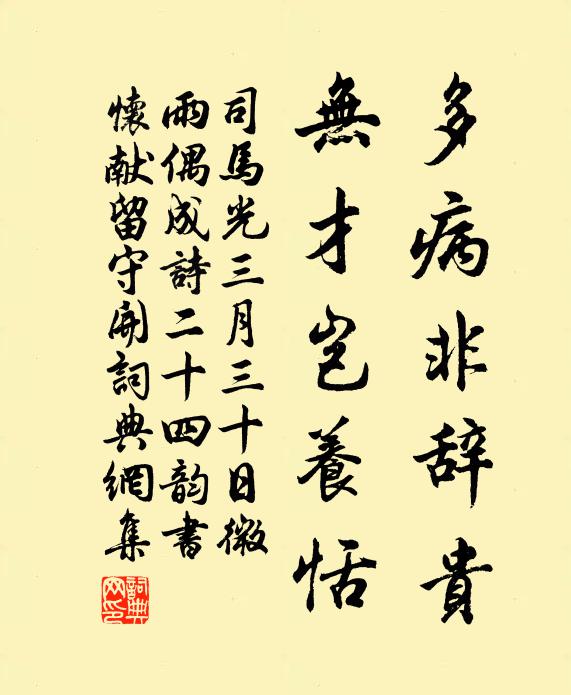 多病非辞貴
無才豈養恬
司馬光三月三十日微
雨偶成詩二十四韵書
懷献留守開詞典網集
詞典
网印